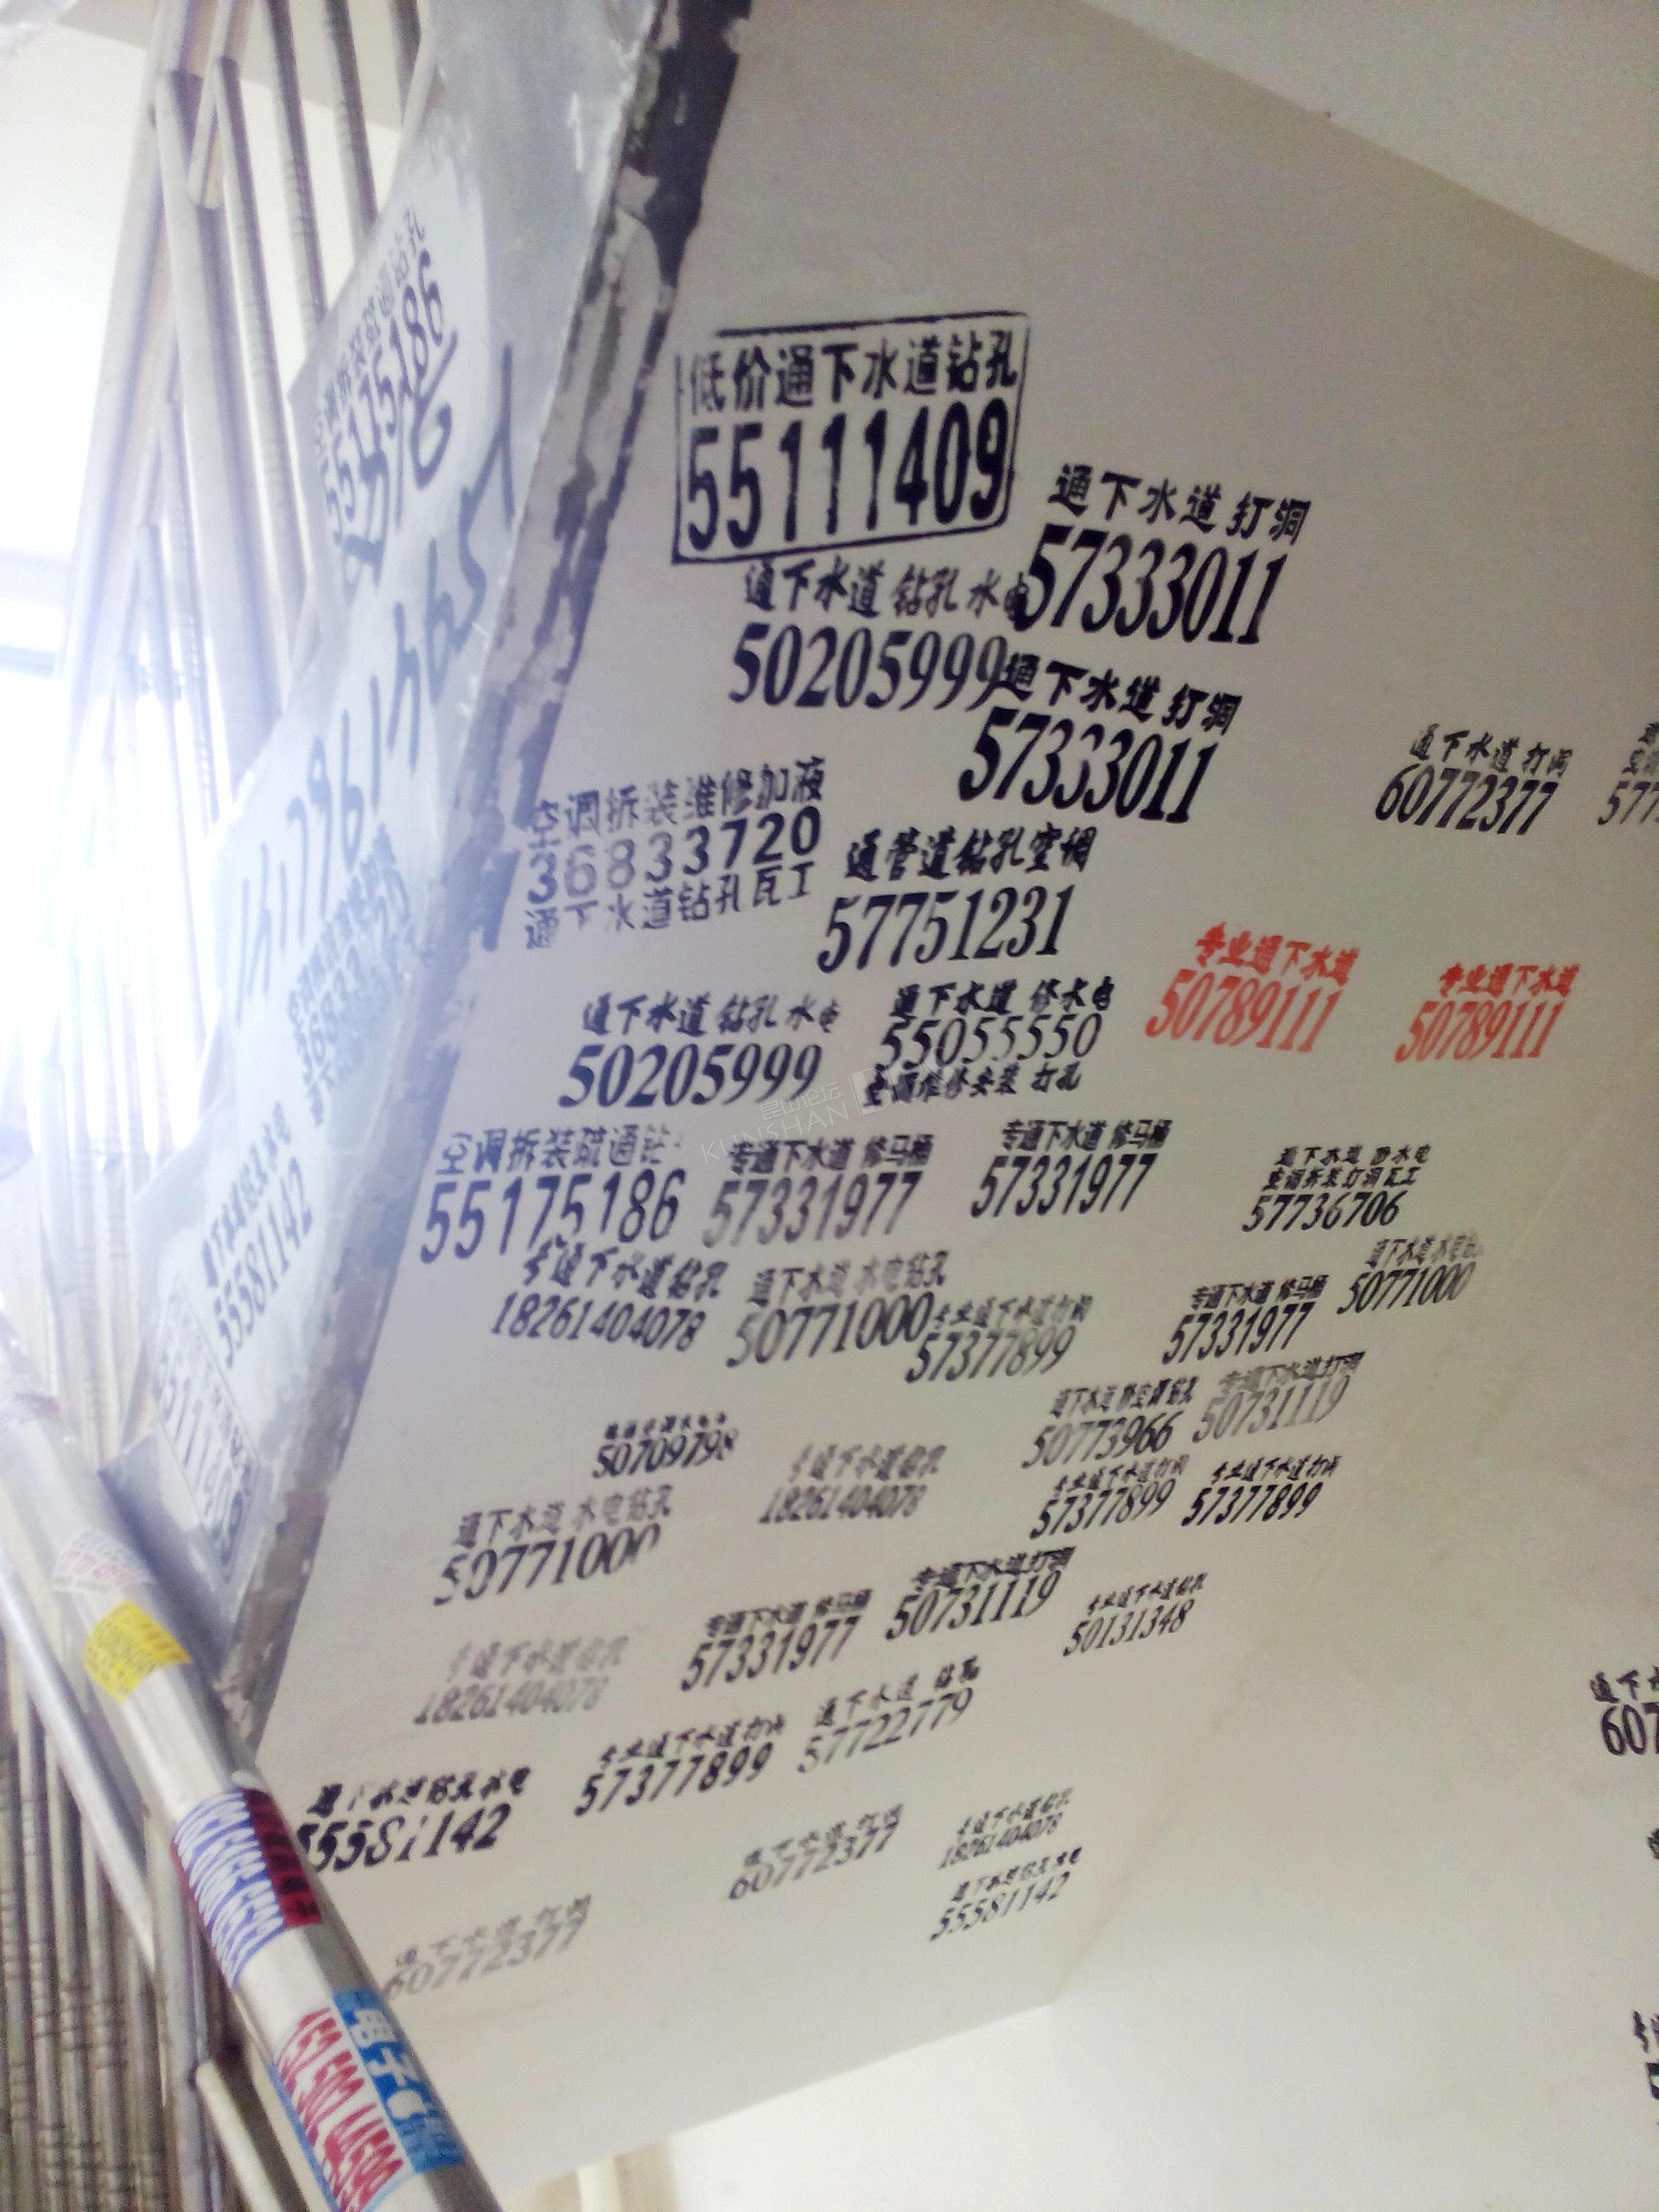 低价通下水道钻孔
55111409
通下水道 打洞
57333011
通下水道 钻孔 水电
50205999
通下水道 打洞
57333011
通下水道 打洞
60772377
577
空调拆装维修加液
36833720
通下水道钻孔瓦工
通管道钻孔空调
57751231
专业通下水道
50789111
专业通下水道
50789111
通下水道 钻孔 水电
50205999
通下水道 修水电
55055550
空调维修安装 打孔
昆山论坛
KUNSHAN
空调拆装疏通钻
55175186
专通下水道 修马桶
57331977
专通下水道 修马桶
57331977
通下水道 修水电
空调拆装打洞瓦工
57736706
专通下水道钻孔
18261404078
通下水道 水电钻孔
50771000
专业通下水道打洞
57377899
专通下水道 修马桶
57331977
通下水道 水电钻孔
50771000
50709798
专通下水道钻孔
18261404078
通下水道修空调钻孔
50773966
专通下水道打洞
50731119
专业通下水道打洞
57377899
专业通下水道打洞
57377899
通下水道 水电钻孔
50771000
专通下水道钻孔
18261404078
专通下水道 修马桶
57331977
专通下水道打洞
50731119
专业通下水道钻孔
50131348
通下水道钻孔水电
55581142
专业通下水道打洞
57377899
通下水道 钻孔
57722779
通下水道 打洞
60772377
专通下水道钻孔
18261404078
通下水道钻孔水电
55581142
通下水道 打洞
60772377
通下
607
空调拆装疏通钻孔
55175186
36833720
通下水道钻孔水电
55581142